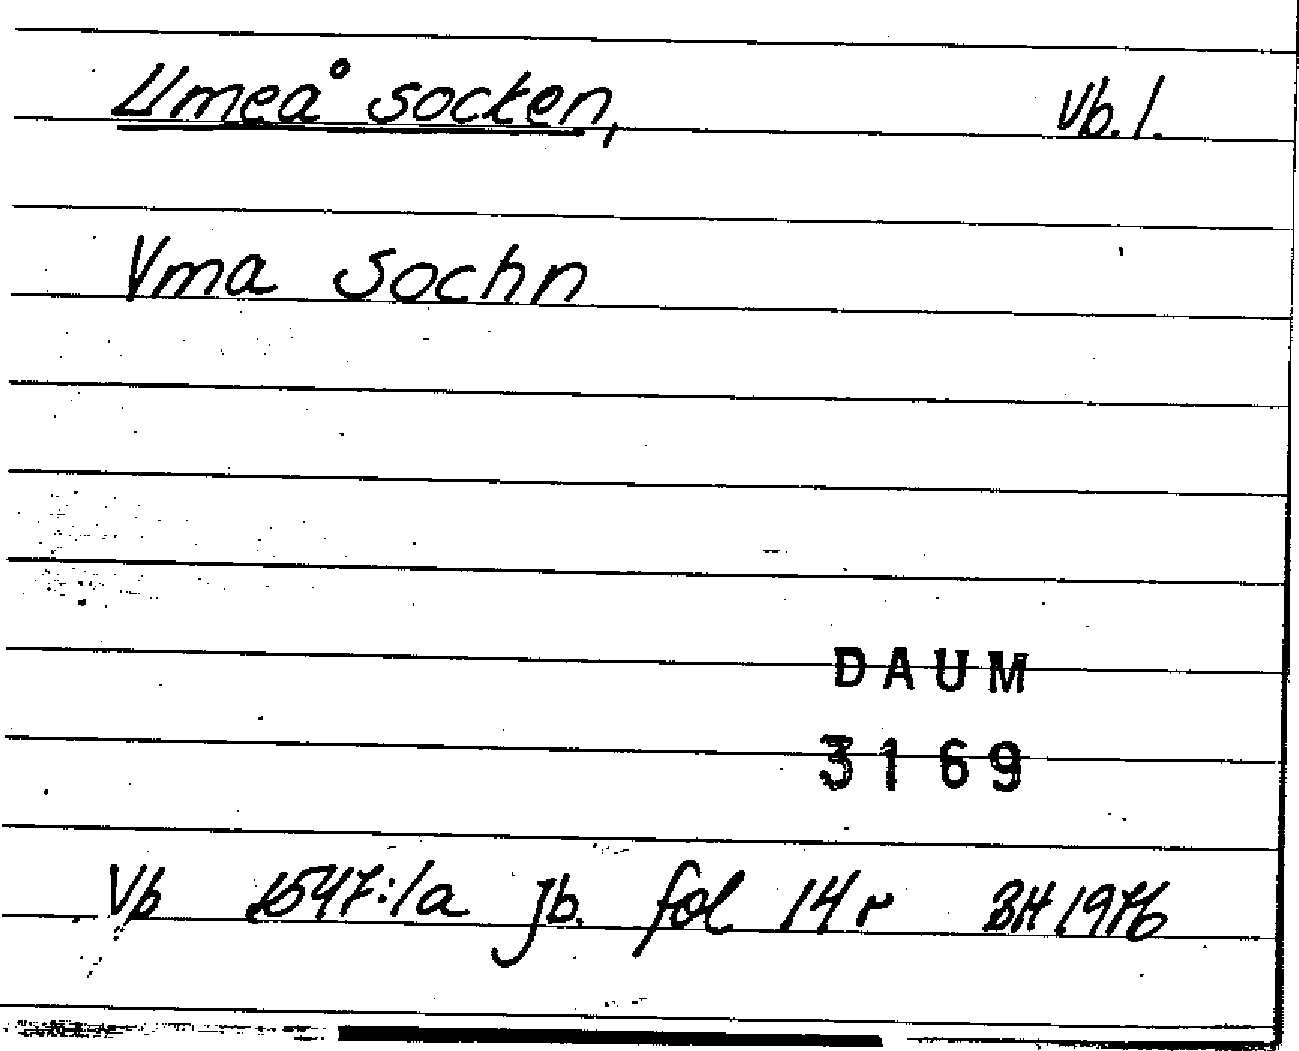 Umeå socken, Vb. l.
Vma Sochn
DAUM
3169
Vb 1547:1a jb. fol 14 r BH 1976